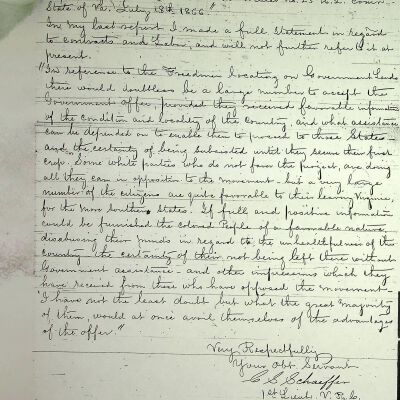 State of Va. July 13th 1866."
In my last report I made a full statement in regard
to contracts and Labor, and will not further refer to it at
present.
"In reference to the Freedmen locating on Government Lands
there would doubtless be a large number to accept the
Government offer, provided they received favorable information
of the condition and locality of the Country, and what assistance
can be depended on to enable them to proceed to those States—
and the certainty of being subsisted until they secure their first
crop. Some white parties who do not favor the project, are doing
all they can in opposition to the movement— but a very large
number of the citizens are quite favorable to their leaving Virginia,
for the more Southern States. If full and positive information
could be furnished the colored People of a favorable nature,
disabusing their minds in regard to the unhealthfulness of the
country the certainty of their not being left there without
Government assistance— and other impressions which they
have received from those who have opposed the movement—
I have not the least doubt but what the great majority
of them, would at once avail themselves of the advantages
of the offer."
Very Respectfully
Your Obt. Servant
C. S. Schaeffer
1st Lieut. V.R.C.